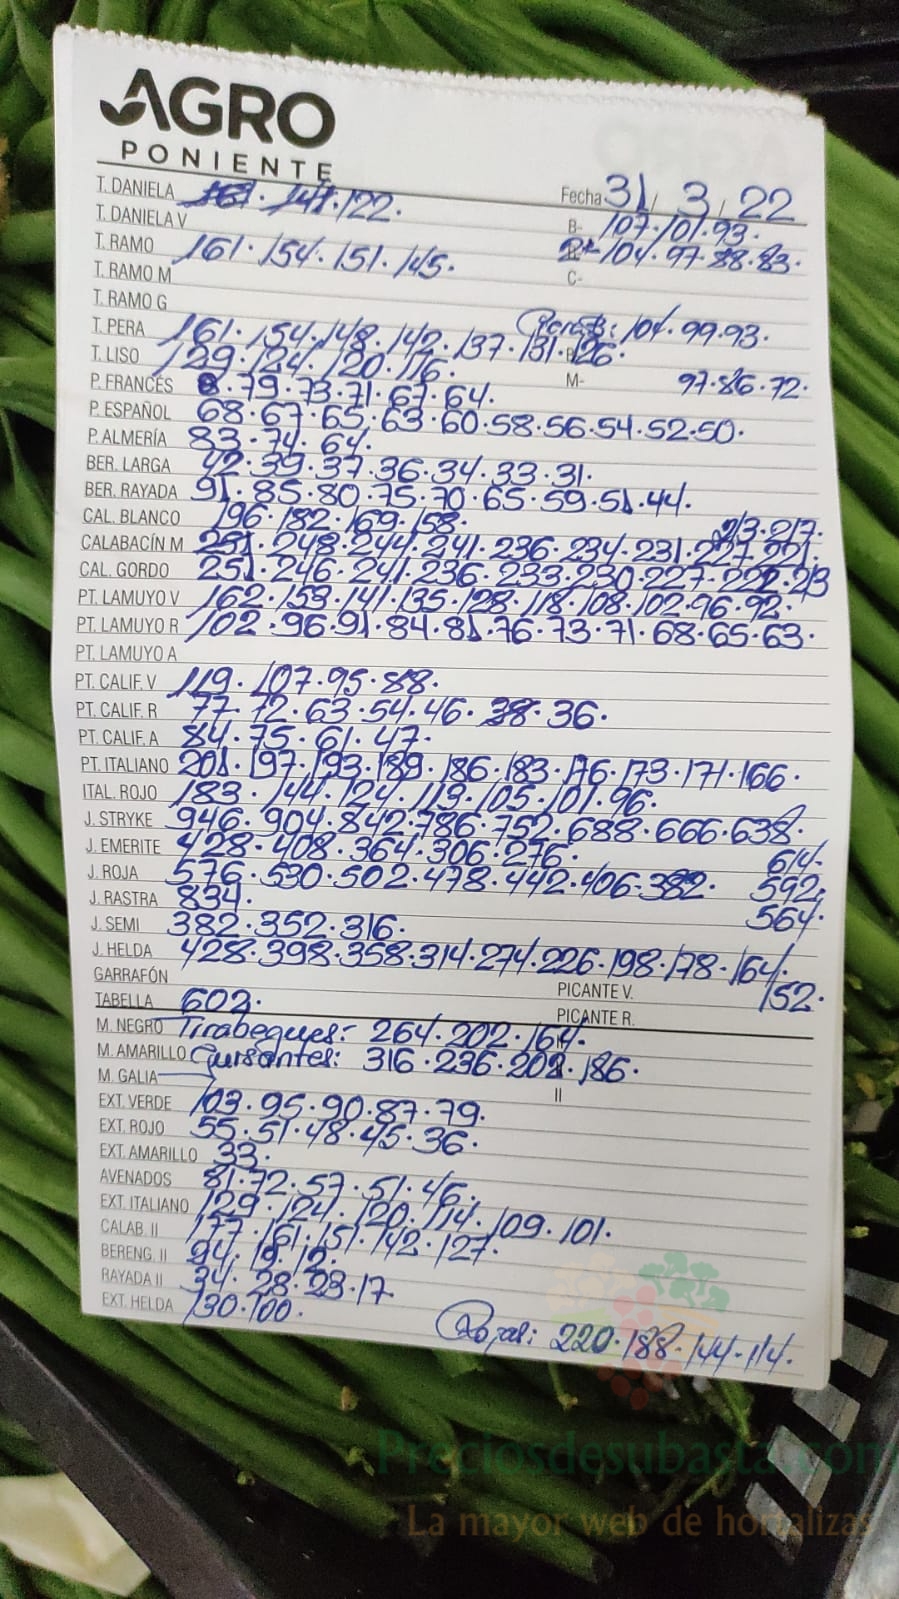 AGRO
PONIENTE
Fecha 31/3/22
T. DANIELA 161·141·122. B- 107·101·93.
T. DANIELA V 2ª- 104·97·88·83.
T. RAMO 161·154·151·145. C-
T. RAMO M
T. RAMO G 104·99·93.
T. PERA 161·154·148·142·137·131·126.
T. LISO 129·124·120·116. M- 97·86·72.
P. FRANCÉS 79·73·71·67·64.
P. ESPAÑOL 68·67·65·63·60·58·56·54·52·50.
P. ALMERÍA 83·74·64.
BER. LARGA 42·39·37·36·34·33·31.
BER. RAYADA 91·85·80·75·70·65·59·51·44.
CAL. BLANCO 196·182·169·158. 213·217.
CALABACÍN M 251·248·244·241·236·234·231·227·221.
CAL. GORDO 251·246·241·236·233·230·227·222·213
PT. LAMUYO V 162·153·141·135·128·118·108·102·96·92.
PT. LAMUYO R 102·96·91·84·81·76·73·71·68·65·63.
PT. LAMUYO A
PT. CALIF. V 119·107·95·88.
PT. CALIF. R 77·72·63·54·46·38·36.
PT. CALIF. A 84·75·61·47.
PT. ITALIANO 201·197·193·189·186·183·176·173·171·166.
ITAL. ROJO 183·144·124·113·105·101·96.
J. STRYKE 946·904·842·786·752·688·666·638.
J. EMERITE 428·408·364·306·276. 614.
J. ROJA 576·530·502·478·442·406·382. 592.
J. RASTRA 834. 564.
J. SEMI 382·352·316.
J. HELDA 428·398·358·314·274·226·198·178·164.
GARRAFÓN PICANTE V. 152.
TABELLA 602. PICANTE R.
M. NEGRO Tirabeques: 264·202·164.
M. AMARILLO Guisantes: 316·236·202·186.
M. GALIA II
EXT. VERDE 103·95·90·87·79.
EXT. ROJO 55·51·48·45·36.
EXT. AMARILLO 33.
AVENADOS 81·72·57·51·46.
EXT. ITALIANO 129·124·120·114·109·101.
CALAB. II 177·161·151·142·127.
BERENG. II 94·19·12.
RAYADA II 34·28·23·17.
EXT. HELDA 130·100.
Rojas: 220·188·144·114.
Preciosdesubasta.com
La mayor web de hortalizas